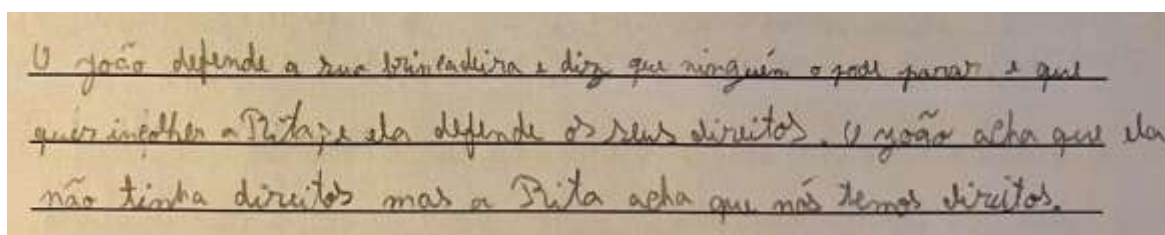 O João defende a sua brincadeira e diz que ninguém o pode parar e que
quer incolher a Rita, e ela defende os seus direitos. O João acha que ela
não tinha direitos mas a Rita acha que nós temos direitos.